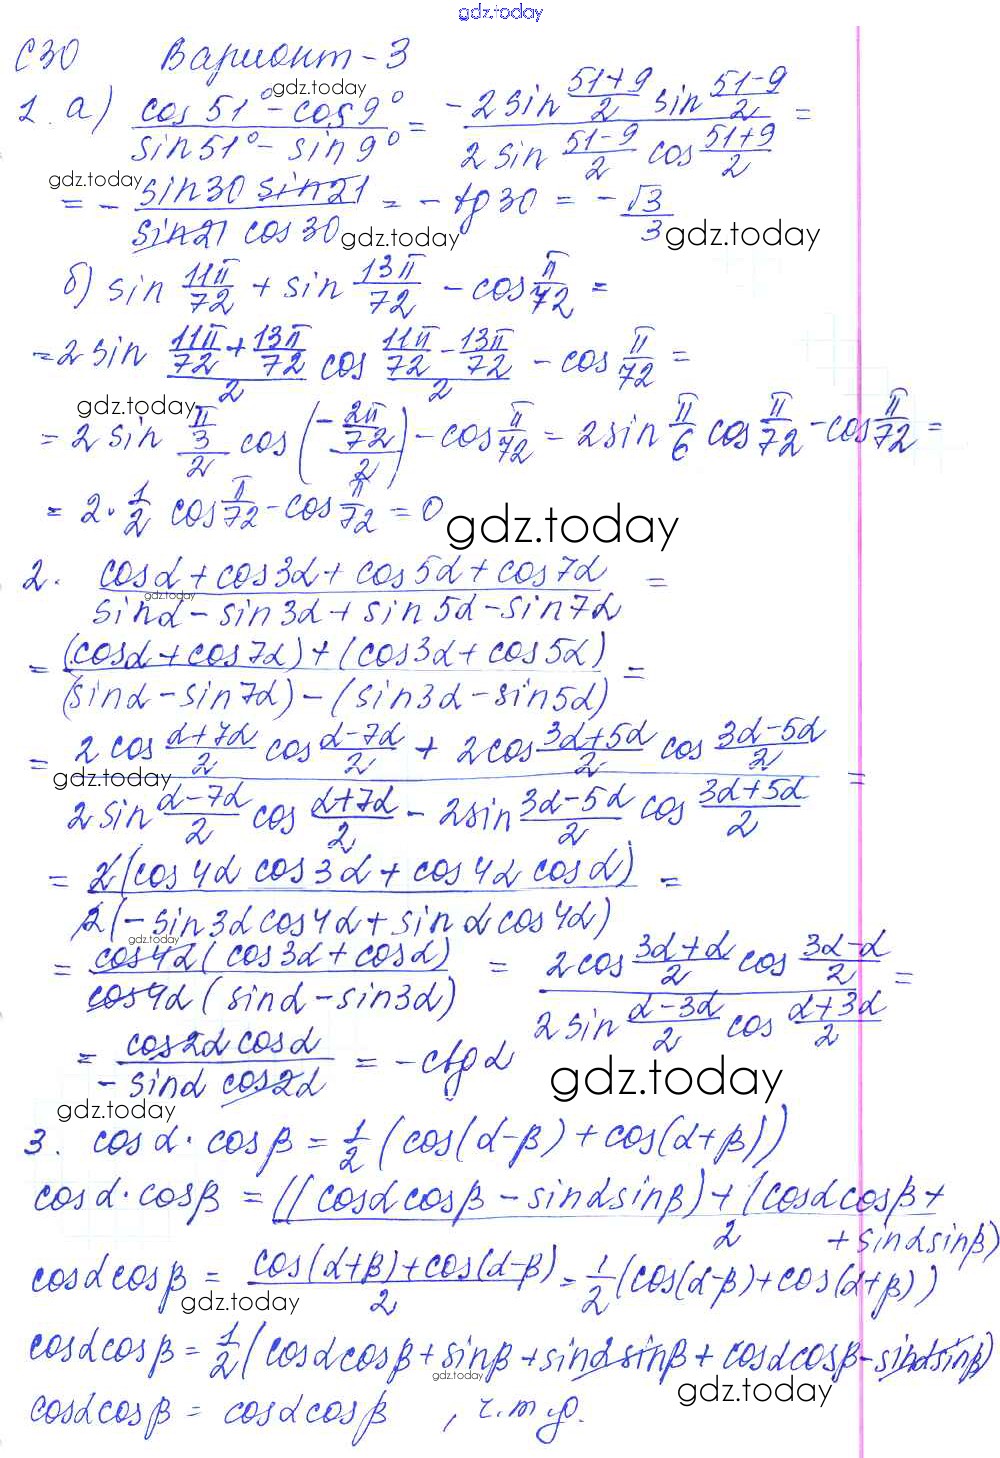 gdz.today
С30 Вариант-3
1. а) (cos51° - cos9°)/(sin51° - sin9°) = (-2sin (51+9)/2 sin (51-9)/2)/(2sin (51-9)/2 cos (51+9)/2) =
gdz.today
= - (sin30 sin21)/(sin21 cos30) = - tg30 = - √3/3
gdz.today
gdz.today
gdz.today
б) sin 11π/72 + sin 13π/72 - cos π/72 =
= 2sin (11π/72 + 13π/72)/2 cos (11π/72 - 13π/72)/2 - cos π/72 =
gdz.today
= 2 sin (π/3)/2 cos (-(2π/72)/2) - cos π/72 = 2sin π/6 cos π/72 - cos π/72 =
= 2 · 1/2 cos π/72 - cos π/72 = 0
gdz.today
2. (cosα + cos3α + cos5α + cos7α)/(sinα - sin3α + sin5α - sin7α) =
gdz.today
= ((cosα + cos7α) + (cos3α + cos5α))/((sinα - sin7α) - (sin3α - sin5α)) =
= (2cos (α+7α)/2 cos (α-7α)/2 + 2cos (3α+5α)/2 cos (3α-5α)/2)/(2sin (α-7α)/2 cos (α+7α)/2 - 2sin (3α-5α)/2 cos (3α+5α)/2) =
gdz.today
= 2(cos4α cos3α + cos4α cosα)/2(-sin3α cos4α + sinα cos4α) =
gdz.today
= cos4α(cos3α + cosα)/cos4α(sinα - sin3α) = (2cos (3α+α)/2 cos (3α-α)/2)/(2sin (α-3α)/2 cos (α+3α)/2) =
= (cos2α cosα)/(-sinα cos2α) = - ctgα
gdz.today
gdz.today
3. cosα · cosβ = 1/2 (cos(α-β) + cos(α+β))
cosα · cosβ = ((cosαcosβ - sinαsinβ) + (cosαcosβ +
+ sinαsinβ)/2
cosαcosβ = (cos(α+β) + cos(α-β))/2 = 1/2 (cos(α-β) + cos(α+β))
gdz.today
cosαcosβ = 1/2 (cosαcosβ + sinβ + sinαsinβ + cosαcosβ - sinαsinβ)
gdz.today
gdz.today
cosαcosβ = cosαcosβ , ч.т.д.